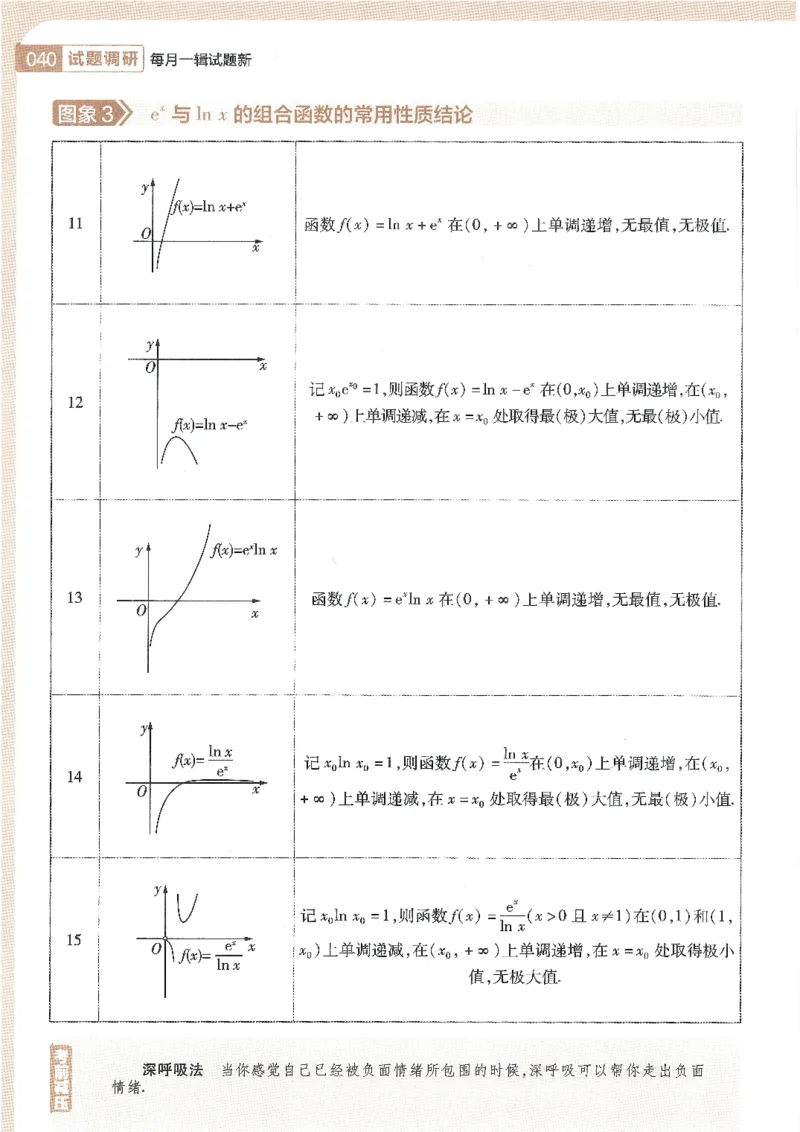 040 试题调研 每月一辑试题新
图象3 eˣ 与 ln x 的组合函数的常用性质结论
11
y
f(x)=ln x+eˣ
O
x
函数 f(x) = ln x + eˣ 在(0, + ∞ )上单调递增,无最值,无极值.
12
y
O
x
f(x)=ln x−eˣ
记 x₀e^{x₀} = 1,则函数 f(x) = ln x − eˣ 在(0,x₀)上单调递增,在(x₀,
+ ∞ )上单调递减,在 x = x₀ 处取得最(极)大值,无最(极)小值.
13
y
f(x)=eˣln x
O
x
函数 f(x) = eˣln x 在(0, + ∞ )上单调递增,无最值,无极值.
14
y
f(x)= ln x / eˣ
O
x
记 x₀ln x₀ = 1,则函数 f(x) = ln x / eˣ 在(0,x₀)上单调递增,在(x₀,
+ ∞ )上单调递减,在 x = x₀ 处取得最(极)大值,无最(极)小值.
15
y
O
x
f(x)= eˣ / ln x
记 x₀ln x₀ = 1,则函数 f(x) = eˣ / ln x (x > 0 且 x ≠ 1)在(0,1)和(1,
x₀)上单调递减,在(x₀, + ∞ )上单调递增,在 x = x₀ 处取得极小
值,无极大值.
考前减压
深呼吸法 当你感觉自己已经被负面情绪所包围的时候,深呼吸可以帮你走出负面
情绪.